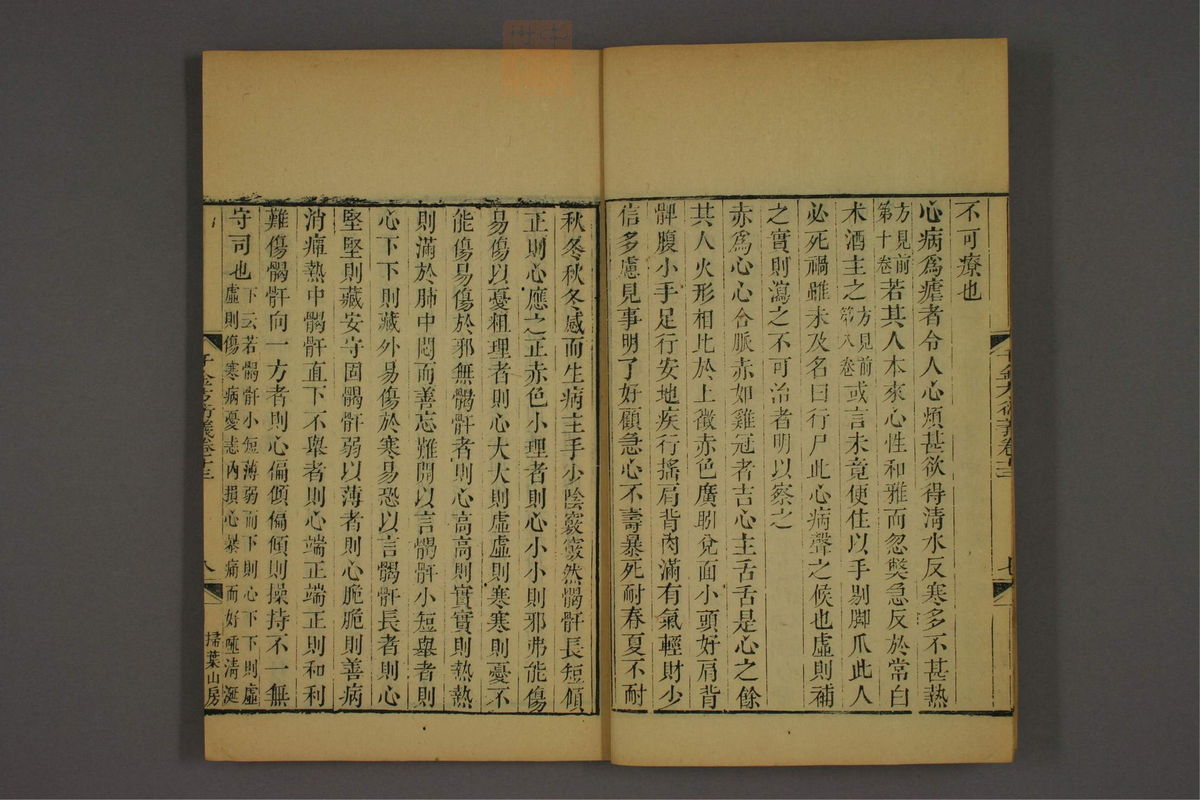 不可療也
心病爲瘧者令人心煩甚欲得清水反寒多不甚熱
方見前第十卷若其人本來心性和雅而忽弊急反於常白
朮酒主之方見前第八卷或言未竟便住以手剔脚爪此人
必死禍雖未及名曰行尸此心病聲之候也虛則補
之實則瀉之不可治者明以察之
赤爲心心合脈赤如雞冠者吉心主舌舌是心之餘
其人火形相比於上徵赤色廣䏖兌面小頭好肩背
髀腹小手足行安地疾行搖肩背肉滿有氣輕財少
信多慮見事明了好顧急心不壽暴死耐春夏不耐
秋冬秋冬感而生病主手少陰窽窽然䯏骬長短傾
正則心應之正赤色小理者則心小小則邪弗能傷
易傷以憂粗理者則心大大則虛虛則寒寒則憂不
能傷易傷於邪無䯏骬者則心高高則實實則熱熱
則滿於肺中悶而善忘難開以言䯏骬小短舉者則
心下下則藏外易傷於寒易恐以言䯏骬長者則心
堅堅則藏安守固䯏骬弱以薄者則心脆脆則善病
消癉熱中䯏骬直下不舉者則心端正端正則和利
難傷䯏骬向一方者則心偏傾偏傾則操持不一無
守司也下云若䯏骬小短薄弱而下則心下下則虛虛則傷寒病憂恚內損心暴痛而好唾清涎
千金方衍義卷十三
七
千金方衍義卷十三
八
掃葉山房